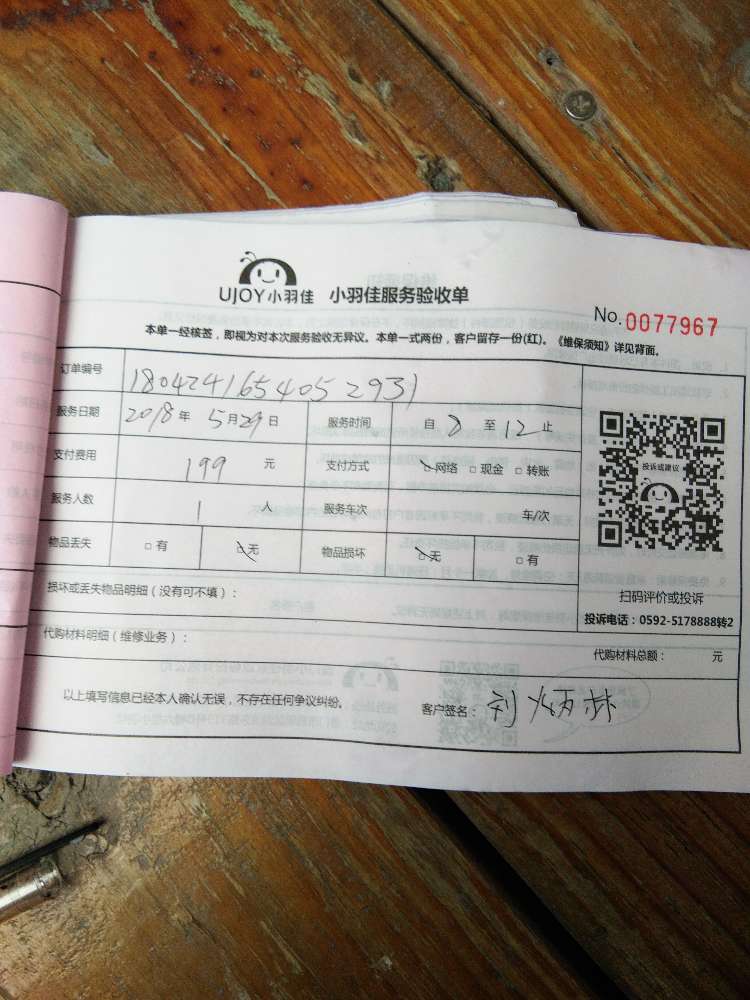 UJOY小羽佳 小羽佳服务验收单
No. 0077967
本单一经核签，即视为对本次服务验收无异议。本单一式两份，客户留存一份(红)。《维保须知》详见背面。
订单编号 1804241654052931
服务日期 2018年 5月29日 服务时间 自 8 至 12 止
支付费用 199 元 支付方式 网络 □ 现金 □ 转账
服务人数 1 人 服务车次 车/次
物品丢失 □ 有 无 物品损坏 无 □ 有
投诉或建议
扫码评价或投诉
投诉电话：0592-5178888转2
损坏或丢失物品明细（没有可不填）：
代购材料明细（维修业务）：
代购材料总额： 元
以上填写信息已经本人确认无误，不存在任何争议纠纷。 客户签名：刘炳林